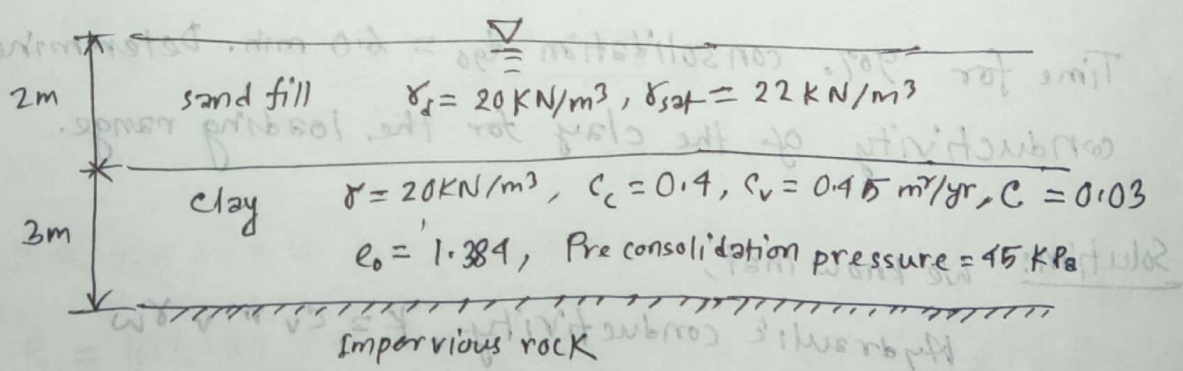 2m
sand fill γd = 20 KN/m³, γsat = 22 KN/m³
clay γ = 20KN/m³, Cc = 0.4, Cv = 0.45 m²/yr, C = 0.03
3m
e0 = 1.384, Pre consolidation pressure = 45 KPa
Impervious rock